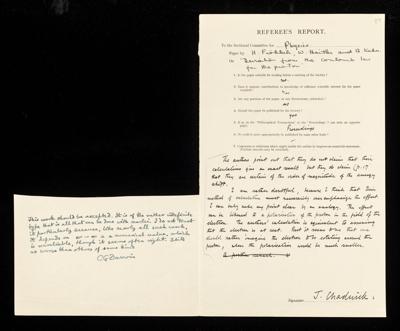 REFEREE'S REPORT.
To the Sectional Committee for Physics
Paper by H. Fröhlich, W. Heitler and B. Kahn
Deviation from the Coulomb law
for the proton
1. Is the paper suitable for reading before a meeting of the Society?
not
2. Does it contain contributions to knowledge of sufficient scientific interest for the paper
Yes
3. Are any portions of the paper, or any illustrations, redundant?
not
4. Should the paper be published by the Society?
yes
5. If so, in the "Philosophical Transactions" or the "Proceedings"?
Proceedings
6. Could it more appropriately be published by some other body?
The authors point out that they do not claim that their
calculations give an exact result but they do claim (p. 17)
that they are certain of the order of magnitude of the energy
shift.
I am rather doubtful, because I think that their
method of calculation must necessarily over-emphasize the effect.
I can only make my point clear by an analogy. The effect
can be likened to a polarisation of the proton in the field of the
electron. The authors' calculation is equivalent to assuming
that the electron is at rest. But it seems to me that one
should rather imagine the electron to be rotating around the
proton, when the polarisation would be much smaller.
Signature J. Chadwick.
This work should be accepted. It is of the rather indefinite
type that is all that can be done with nuclei. I do not trust
it particularly because, like nearly all such work,
it depends on a numerical value, which
is unreliable, though it seems often right. Still
no worse than others of same kind
C G Darwin